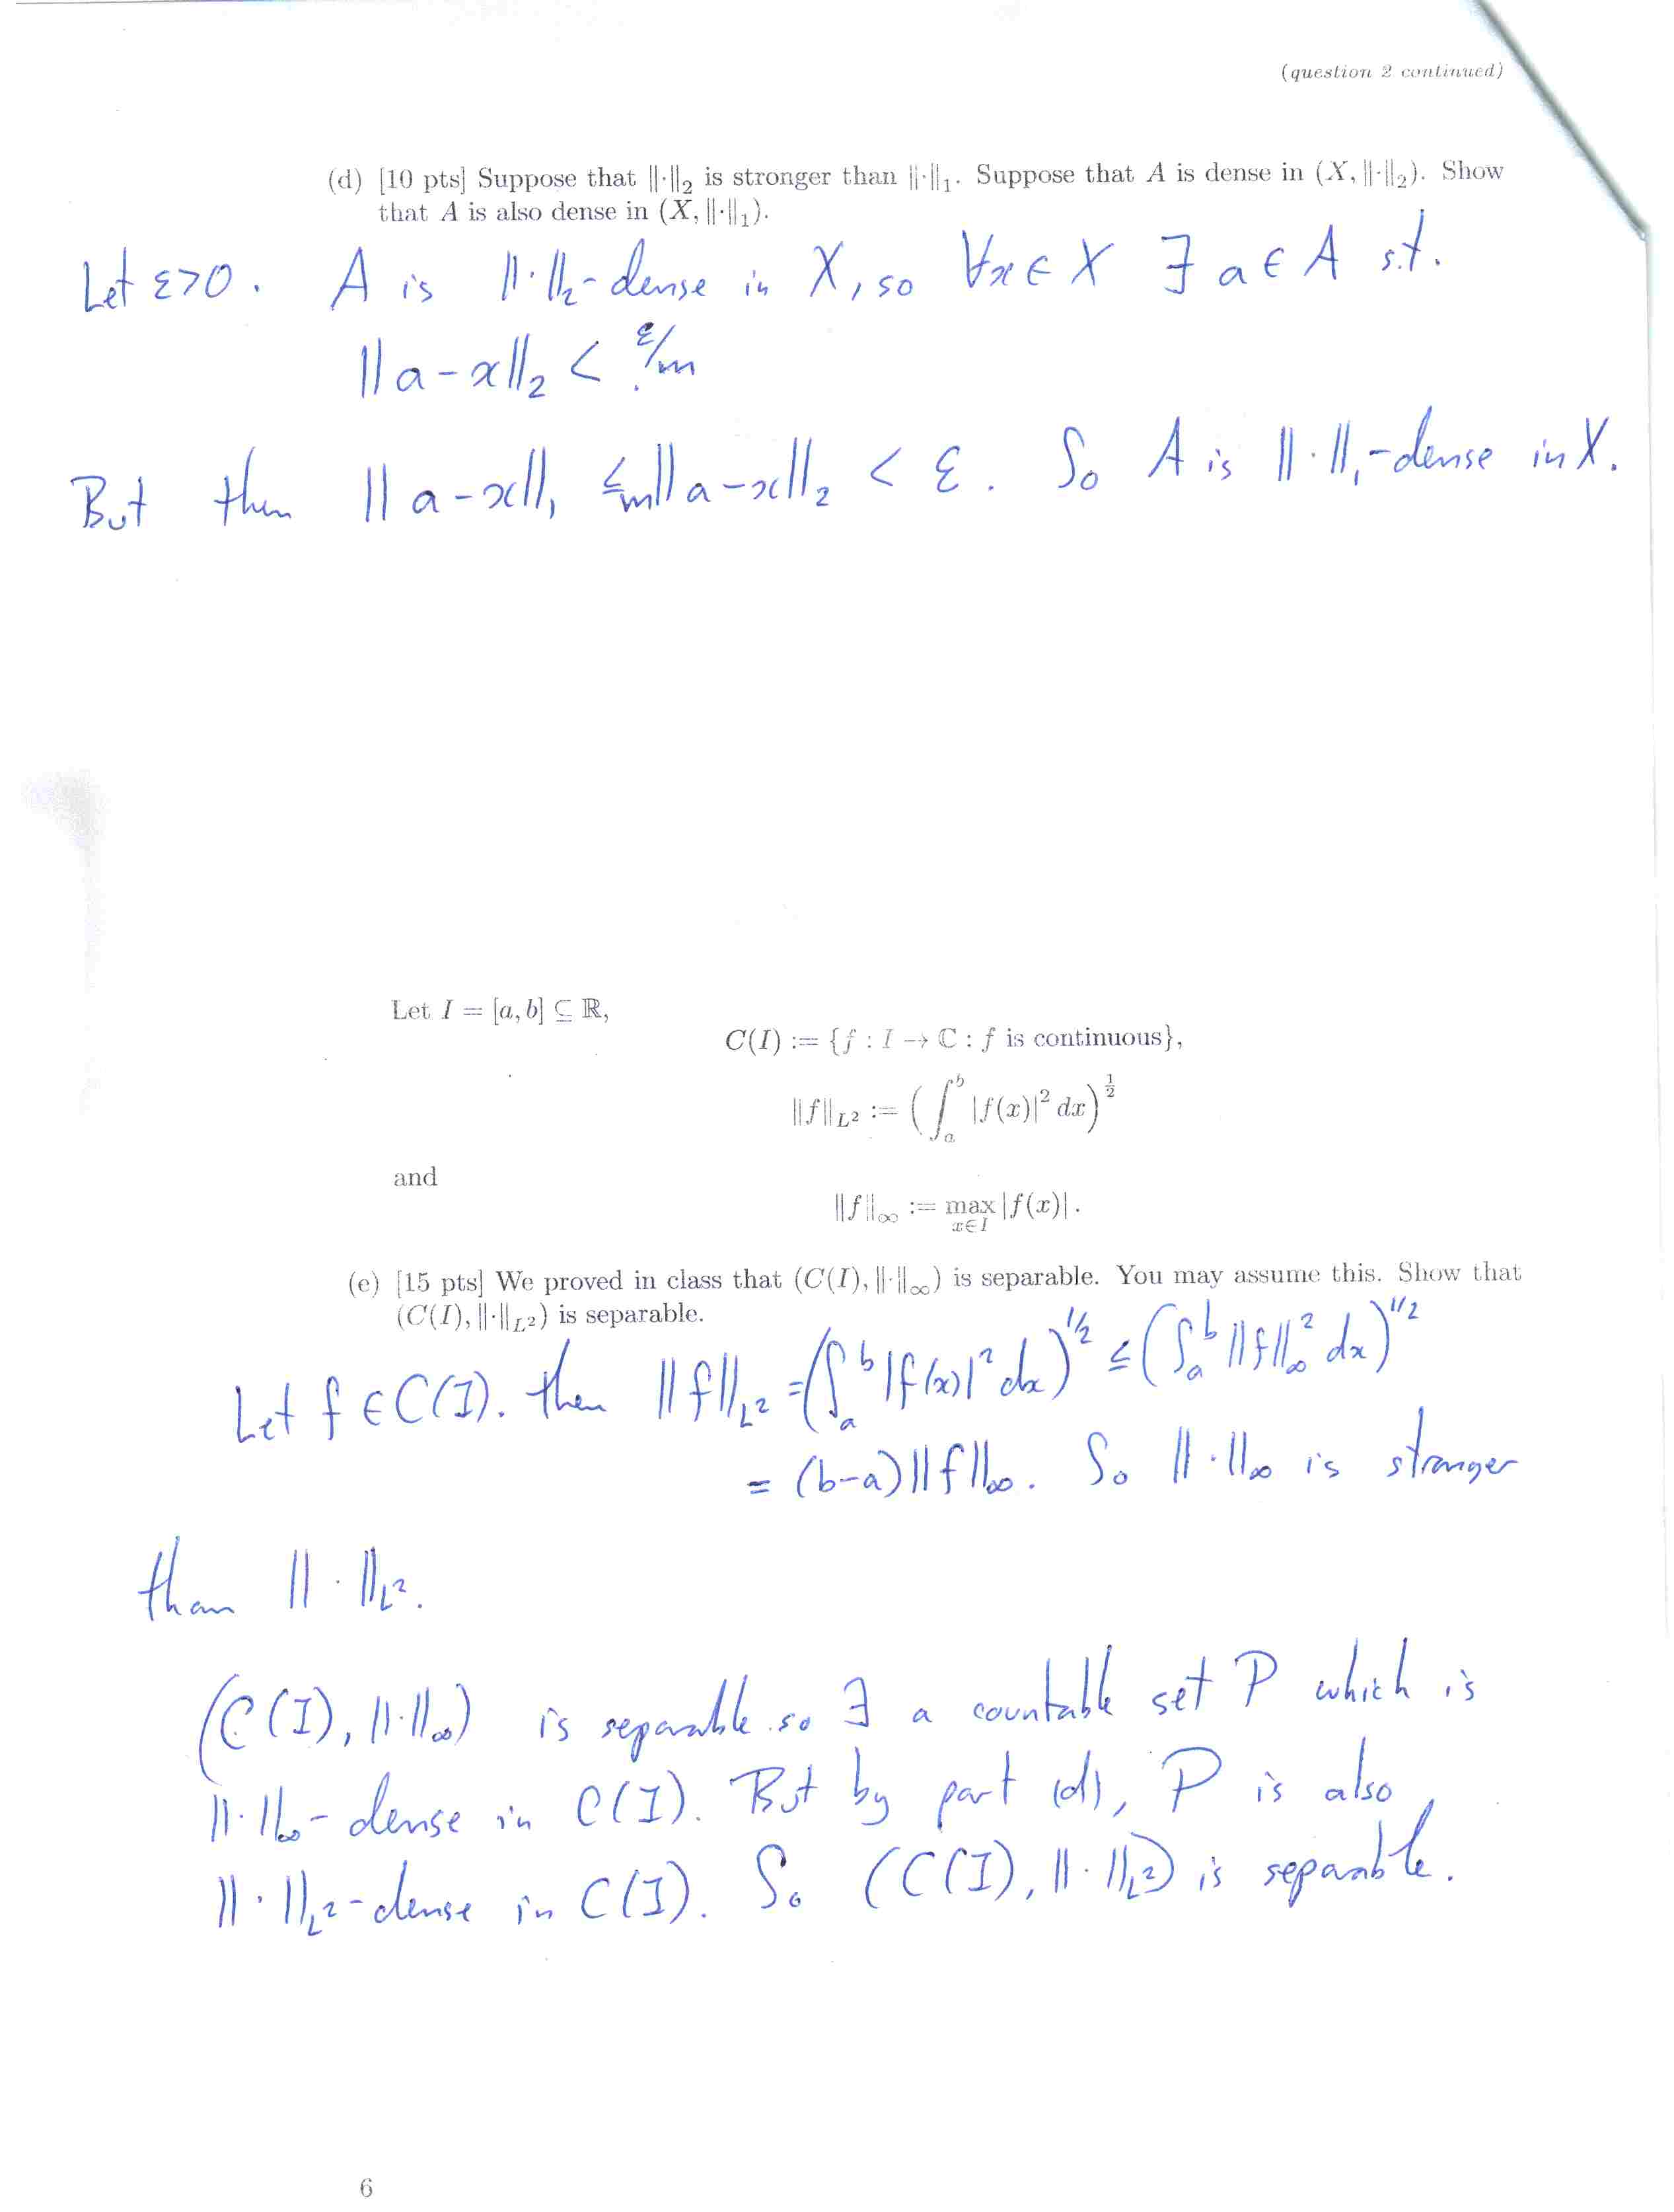 (question 2 continued)
(d) [10 pts] Suppose that ‖·‖₂ is stronger than ‖·‖₁. Suppose that A is dense in (X, ‖·‖₂). Show
that A is also dense in (X, ‖·‖₁).
Let ε>0. A is ‖·‖₂-dense in X, so ∀x∈X ∃ a∈A s.t.
‖a-x‖₂ < ε/m
But then ‖a-x‖₁ ≤ m‖a-x‖₂ < ε. So A is ‖·‖₁-dense in X.
Let I = [a, b] ⊆ ℝ,
C(I) := {f : I → ℂ : f is continuous},
‖f‖_{L²} := (∫_a^b |f(x)|² dx)^{1/2}
and
‖f‖_∞ := max_{x∈I} |f(x)|.
(e) [15 pts] We proved in class that (C(I), ‖·‖_∞) is separable. You may assume this. Show that
(C(I), ‖·‖_{L²}) is separable.
Let f ∈ C(I). then ‖f‖_{L²} = (∫_a^b |f(x)|² dx)^{1/2} ≤ (∫_a^b ‖f‖_∞² dx)^{1/2}
= (b-a)‖f‖_∞. So ‖·‖_∞ is stronger
than ‖·‖_{L²}.
(C(I), ‖·‖_∞) is separable so ∃ a countable set P which is
‖·‖_∞-dense in C(I). But by part (d), P is also
‖·‖_{L²}-dense in C(I). So (C(I), ‖·‖_{L²}) is separable.
6